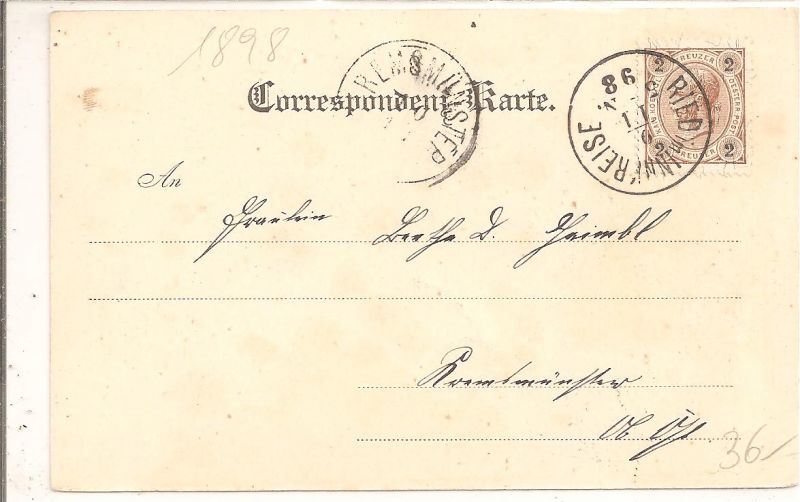 1898
KREMSMÜNSTER
RIED INNKREISE
98
2 KREUZER 2
2 KREUZER 2
Correspondenz-Karte.
An
Fräulein Bertha D.
Kremsmünster
Ob Öst
36